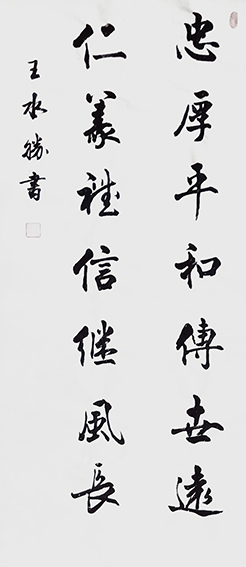 忠厚平和傳世遠
仁義禮信继風長
王水勝書